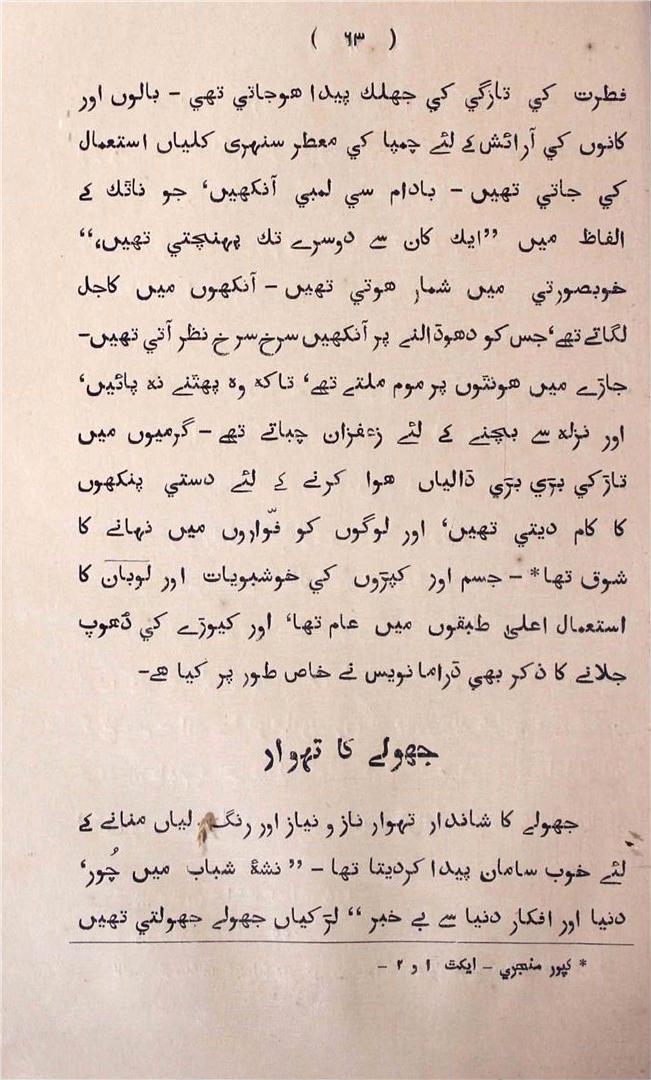 ( ٦٣ )
فطرت کي تازگي کي جھلك پیدا ھوجاتي تھي - بالوں اور
کانوں کي آرائش کے لئے چمپا کي معطر سنہری کلیاں استعمال
کي جاتي تھیں - بادام سي لمبي آنکھیں، جو ناٹك کے
الفاظ میں ”ایك کان سے دوسرے تك پہنچتي تھیں،“
خوبصورتي میں شمار ھوتي تھیں - آنکھوں میں کاجل
لگاتے تھے، جس کو دھوڈالنے پر آنکھیں سرخ سرخ نظر آتي تھیں-
جاڑے میں ھونٹوں پر موم ملتے تھے، تاکہ وہ پھٹنے نہ پائیں،
اور نزلہ سے بچنے کے لئے زعفران چباتے تھے - گرمیوں میں
تاڑ کي بڑي بڑي ڈالیاں ھوا کرنے کے لئے دستي پنکھوں
کا کام دیتي تھیں، اور لوگوں کو فوّاروں میں نہانے کا
شوق تھا* - جسم اور کپڑوں کي خوشبویات اور لوبان کا
استعمال اعلیٰ طبقوں میں عام تھا، اور کیوڑے کي دُھوپ
جلانے کا ذکر بھي ڈراما نویس نے خاص طور پر کیا ھے-
جھولے کا تہوار
جھولے کا شاندار تہوار ناز و نیاز اور رنگ رلیاں منانے کے
لئے خوب سامان پیدا کردیتا تھا - ”نشۂ شباب میں چُور،
دنیا اور افکار دنیا سے بے خبر“ لڑکیاں جھولے جھولتي تھیں
* کپور منجري - ایکٹ ١ و ٢ -